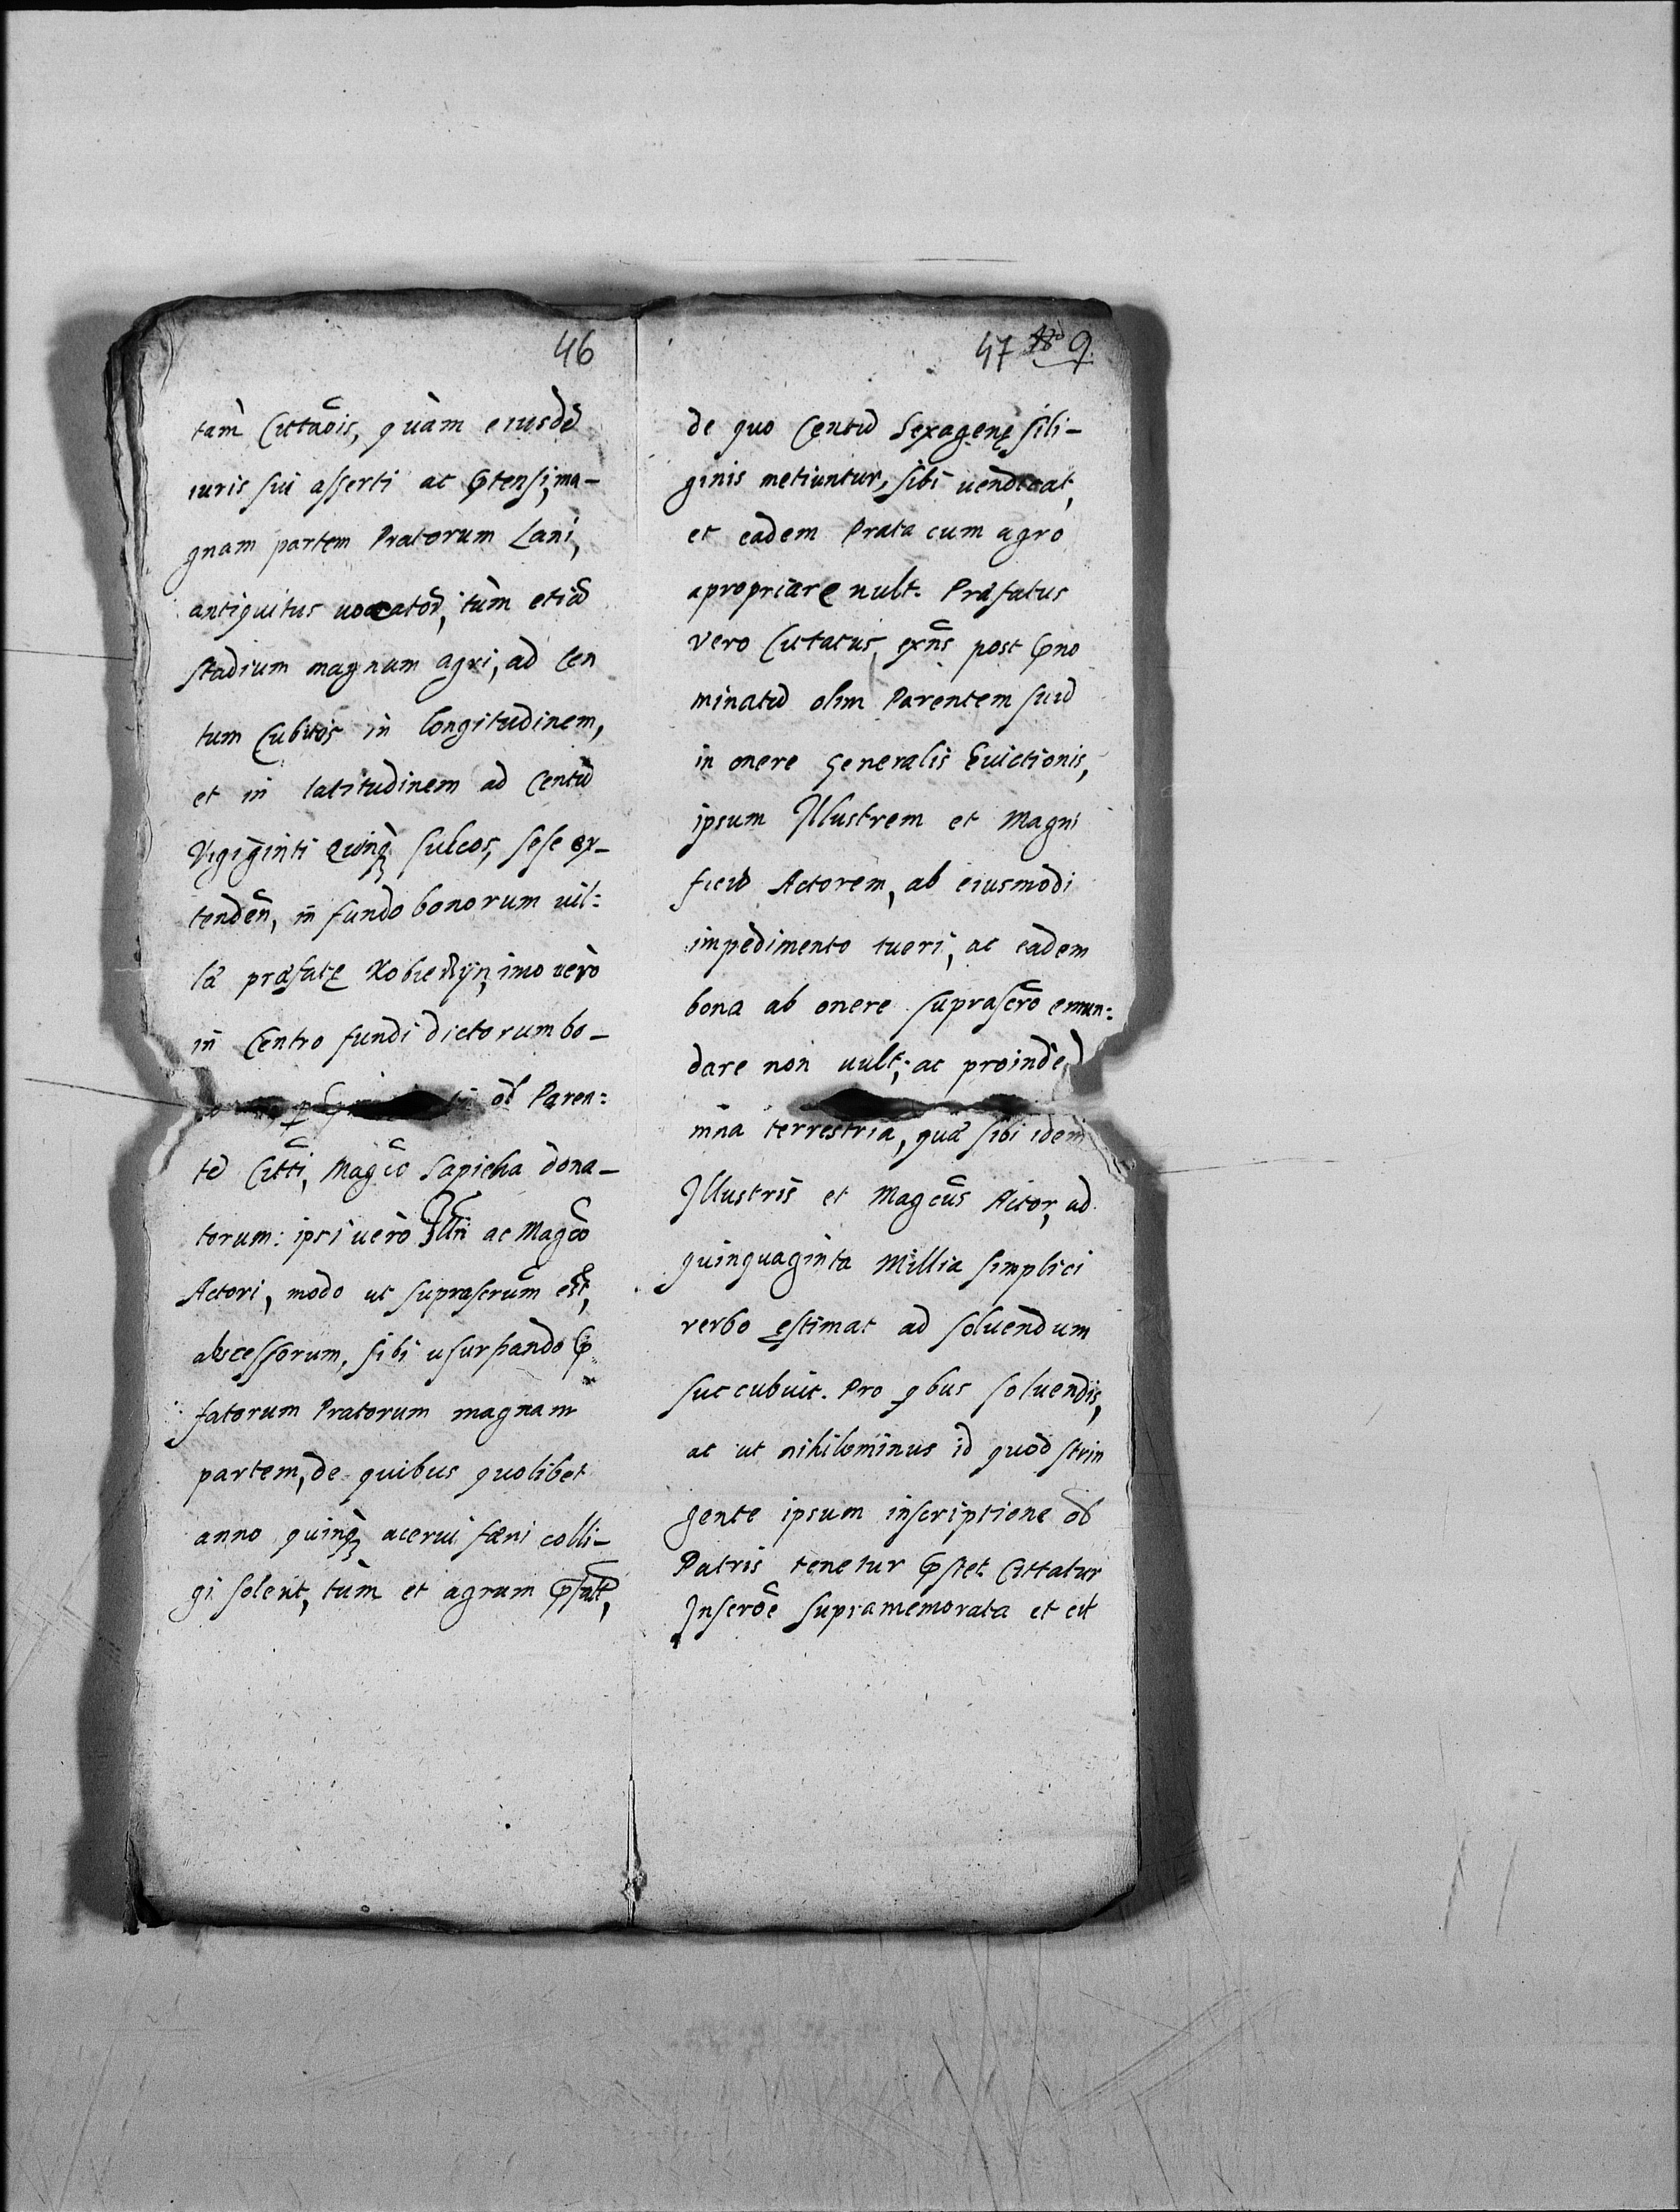 46
tam̀ Cittaōis, quàm eiusdē
iuris sui asserti ac p̄tensi, ma-
gnam partem Pratorum Lani,
antiquitus uocatoȓ, tùm etiā
stadium magnum agri, ad Cen
tum Cubitos in longitudinem,
et in latitudinem ad Centū
Vigiginti Quinq₃ sulcos, sese ex-
tendeñ, in fundo bonorum uil:
læ præfatę Kobielyn, imo uerò
in Centro fundi dictorum bo-
ob Paren:
te Citti, Magco Sapieha dona-
torum: ipsi uerò Illri ac Magco
Actori, modo ut suprascrum est,
abscessorum, sibi usurpando p̄
fatorum Pratorum magnam
partem, de quibus quolibet
anno quinq₃ acerui fæni colli-
gi solent, tùm et agrum p̄fatū,
47 9.
de quo Centū Sexagenę sili-
ginis metiuntur, sibi uendicat,
et eadem Prata cum agro
apropriare uult. Præfatus
vero Cittatus, exn̄s post p̄no
minatū olim Parentem suū
in onere generalis Euictionis,
ipsum Illustrem et Magni
ficū Actorem, ab eiusmodi
impedimento tueri, ac eadem
bona ab onere suprascro emun:
dare non uult; ac proinde
mna terrestria, quæ sibi idem
Illustris et Magcus Actor, ad
quinquaginta Millia simplici
verbo ęstimat ad soluendum
succubuit. Pro qbus soluendis,
ac ut nihilominus id quod strin
gente ipsum inscriptione ob
Patris tenetur p̄stet Cittatur
Inscrōe supramemorata et cit